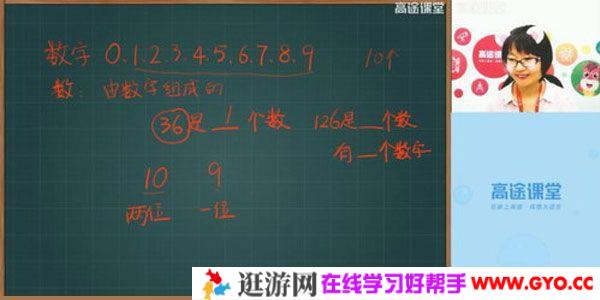 高途课堂
数字 0.1.2.3.4.5.6.7.8.9 10个
数: 由数字组成的
36是 1 个数 126是__个数
有__个数字
10 9
两位 一位
高途课堂
高途课堂
在家上课堂·成绩大进步
逛游网 在线学习好帮手 www.GYO.cc